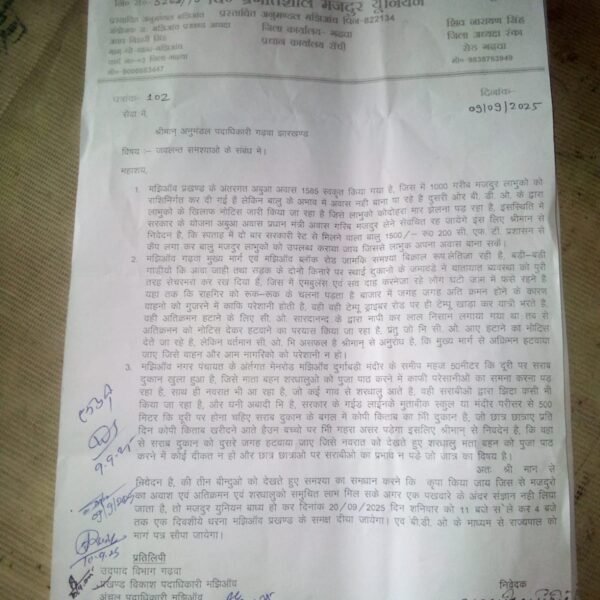 प्रगतिशील मजदुर यूनियन
प्रस्तावित अनुमण्डल मझिआँव पिन-822134
जिला कार्यालय- गढवा
प्रधान कार्यालय राँची
शिव नारायण सिंह
जिला अध्यक्ष रंका
रोड गढवा
पत्रांक- 102
दिनांक-
09/09/2025
सेवा में,
श्रीमान् अनुमंडल पदाधिकारी गढ़वा झारखण्ड
विषय :- जवलन्त समश्याओ के संबंध मे।
महाशय,
1. मझिआँव प्रखण्ड के अंतरगत अबुआ अवास 1585 स्वकृत किया गया है, जिस में 1000 गरीब मजदुर लाभुको को
राशिनिर्गत कर दी गई हैं लेकिन बालु के अभाव में अवास नही बाना पा रहे है दुसरी ओर बी. डी. ओ. के द्वारा
लाभुको के खिलाफ नोटिस जारी किया जा रहा है जिसे लाभुको कोदोहरा मार झेलना पड़ रहा है, इसस्थिति मे
सरकार के योजना अबुआ अवास प्रधान मंत्री अवास गरिब मजदुर लेने संवचित रह जायेगे इस लिए श्रीमान से
निवेदन है, कि सपताह में दो बार सरकारी रेट से मिलने वाला बालु 1500/- रू0 200 सी. एफ.टी. प्रशासन से
कैंप लगा कर बालु मजदुर लाभुको को उपलब्ध कराया जाय जिससे लाभुक अपना अवास बाना सकें।
2. मझिआँव गढ़वा मुख्य मार्ग एवं मझिआँव ब्लॉक रोड जामकि समश्या बिक्राल रूपलेतिजा रही है, बड़ी-बड़ी
गाड़ीयो कि आवा जाही तथ सड़क के दोनो किनारे पर स्थाई दुकानो के जमावडे ने यातायात ब्यवस्था को पुरी
तरह सेचरमरा कर रख दिया है, जिस मे एमबुलेंस एवं सव दाह करनेजा रहे लोग घंटो जाम में फसे रहने है
यहा तक कि राहगिर को रूक-रूक के चलना पड़ता है बाजार में जगह जगह अति क्रमन होने के कारण
वाहनो को गुजरने में काफि परेशानी होती है, वही वही टेम्पू ड्राइबर रोड पर ही टेम्पू खाड़ा कर यात्री भरते है,
वही अतिक्रमन हटाने के लिए सी. ओ. सारदानन्द के द्वारा नापी कर लाल निसान लगाया गया था तब से
अतिक्रमन को नोटिस देकर हटवाने का परयास किया जा रहा है, प्रंतु जो भि सी. ओ. आए हटाने का नोटिस
देते जा रहे है, लेकिन वर्तमान सी. ओ. भि असफल है श्रीमान से अनुरोध है, कि मुख्य मार्ग से अक्रिमन हटवाया
जाए जिसे वाहन और आम नागरिको को परेशानी न हो।
3. मझिआँव नगर पंचायत के अंतर्गत मेनरोड मझिआँव दुर्गाबड़ी मंदीर के समीप महज 50मिटर कि दूरी पर सराब
दुकान खुला हुआ है, जिसे माता बहन शरधालुओ को पुजा पाठ करने मे काफी परेसानीओ का समना करना पड़
रहा है, साथ ही नवरात भी आ रहा है, जो कई गाव से शरधालु आते है, वही सराबीओ द्वारा झिटा कसी भी
किया जा रहा है, और घनी अबादी भि है, सरकार के गाईड लाईनके मुताबीक स्कुल या मंदीर परीसर से 500
मिटर कि दूरी पर होना चहिए सराब दुकान के बगल मे कोपी किताब का भी दुकान है, जो छात्र छात्राए प्रति
दिन कोपी किताब खरीदने आते हैउन बच्चो पर भि गहरा असर पडेगा इसलिए श्रीमान से निवेदन है, कि वहा
से सराब दुकान को दुसरे जगह हटवाया जाए जिसे नवरात को देखते हुए शरधालु माता बहन को पुजा पाठ
करने में कोई दीकत न हो और छात्र छात्राओ पर सराबीओ का प्रभाव न पड़े जो जात्र का बिषय है।
अतः श्री मान से
निवेदन है, की तीन बीन्दुओ को देखते हुए समश्या का समधान करने कि कृपा किया जाय जिस से मजदुरो
का अवाश एवं अतिक्रमन एवं शरधालुको समुचित लाभ मिल सके अगर एक पखवारे के अंदर संज्ञान नही लिया
जाता है, तो मजदुर युनियन बाध्य हो कर दिनांक 20/09/2025 दिन शनिवार को 11 बजे से ले कर 4 बजे
तक एक दिवशीये धरना मझिआँव प्रखण्ड के समक्ष दीया जायेगा। एवं बी.डी. ओ. के माध्यम से राज्यपाल को
मांग पत्र सौपा जायेगा।
9.9.25
09/9/2025
10.9.25
प्रतिलिपी
उदपाद विभाग गढवा
प्रखण्ड विकाश पदाधिकारी मझिआँव
अंचल पदाधिकारी मझिआँव
निवेदक